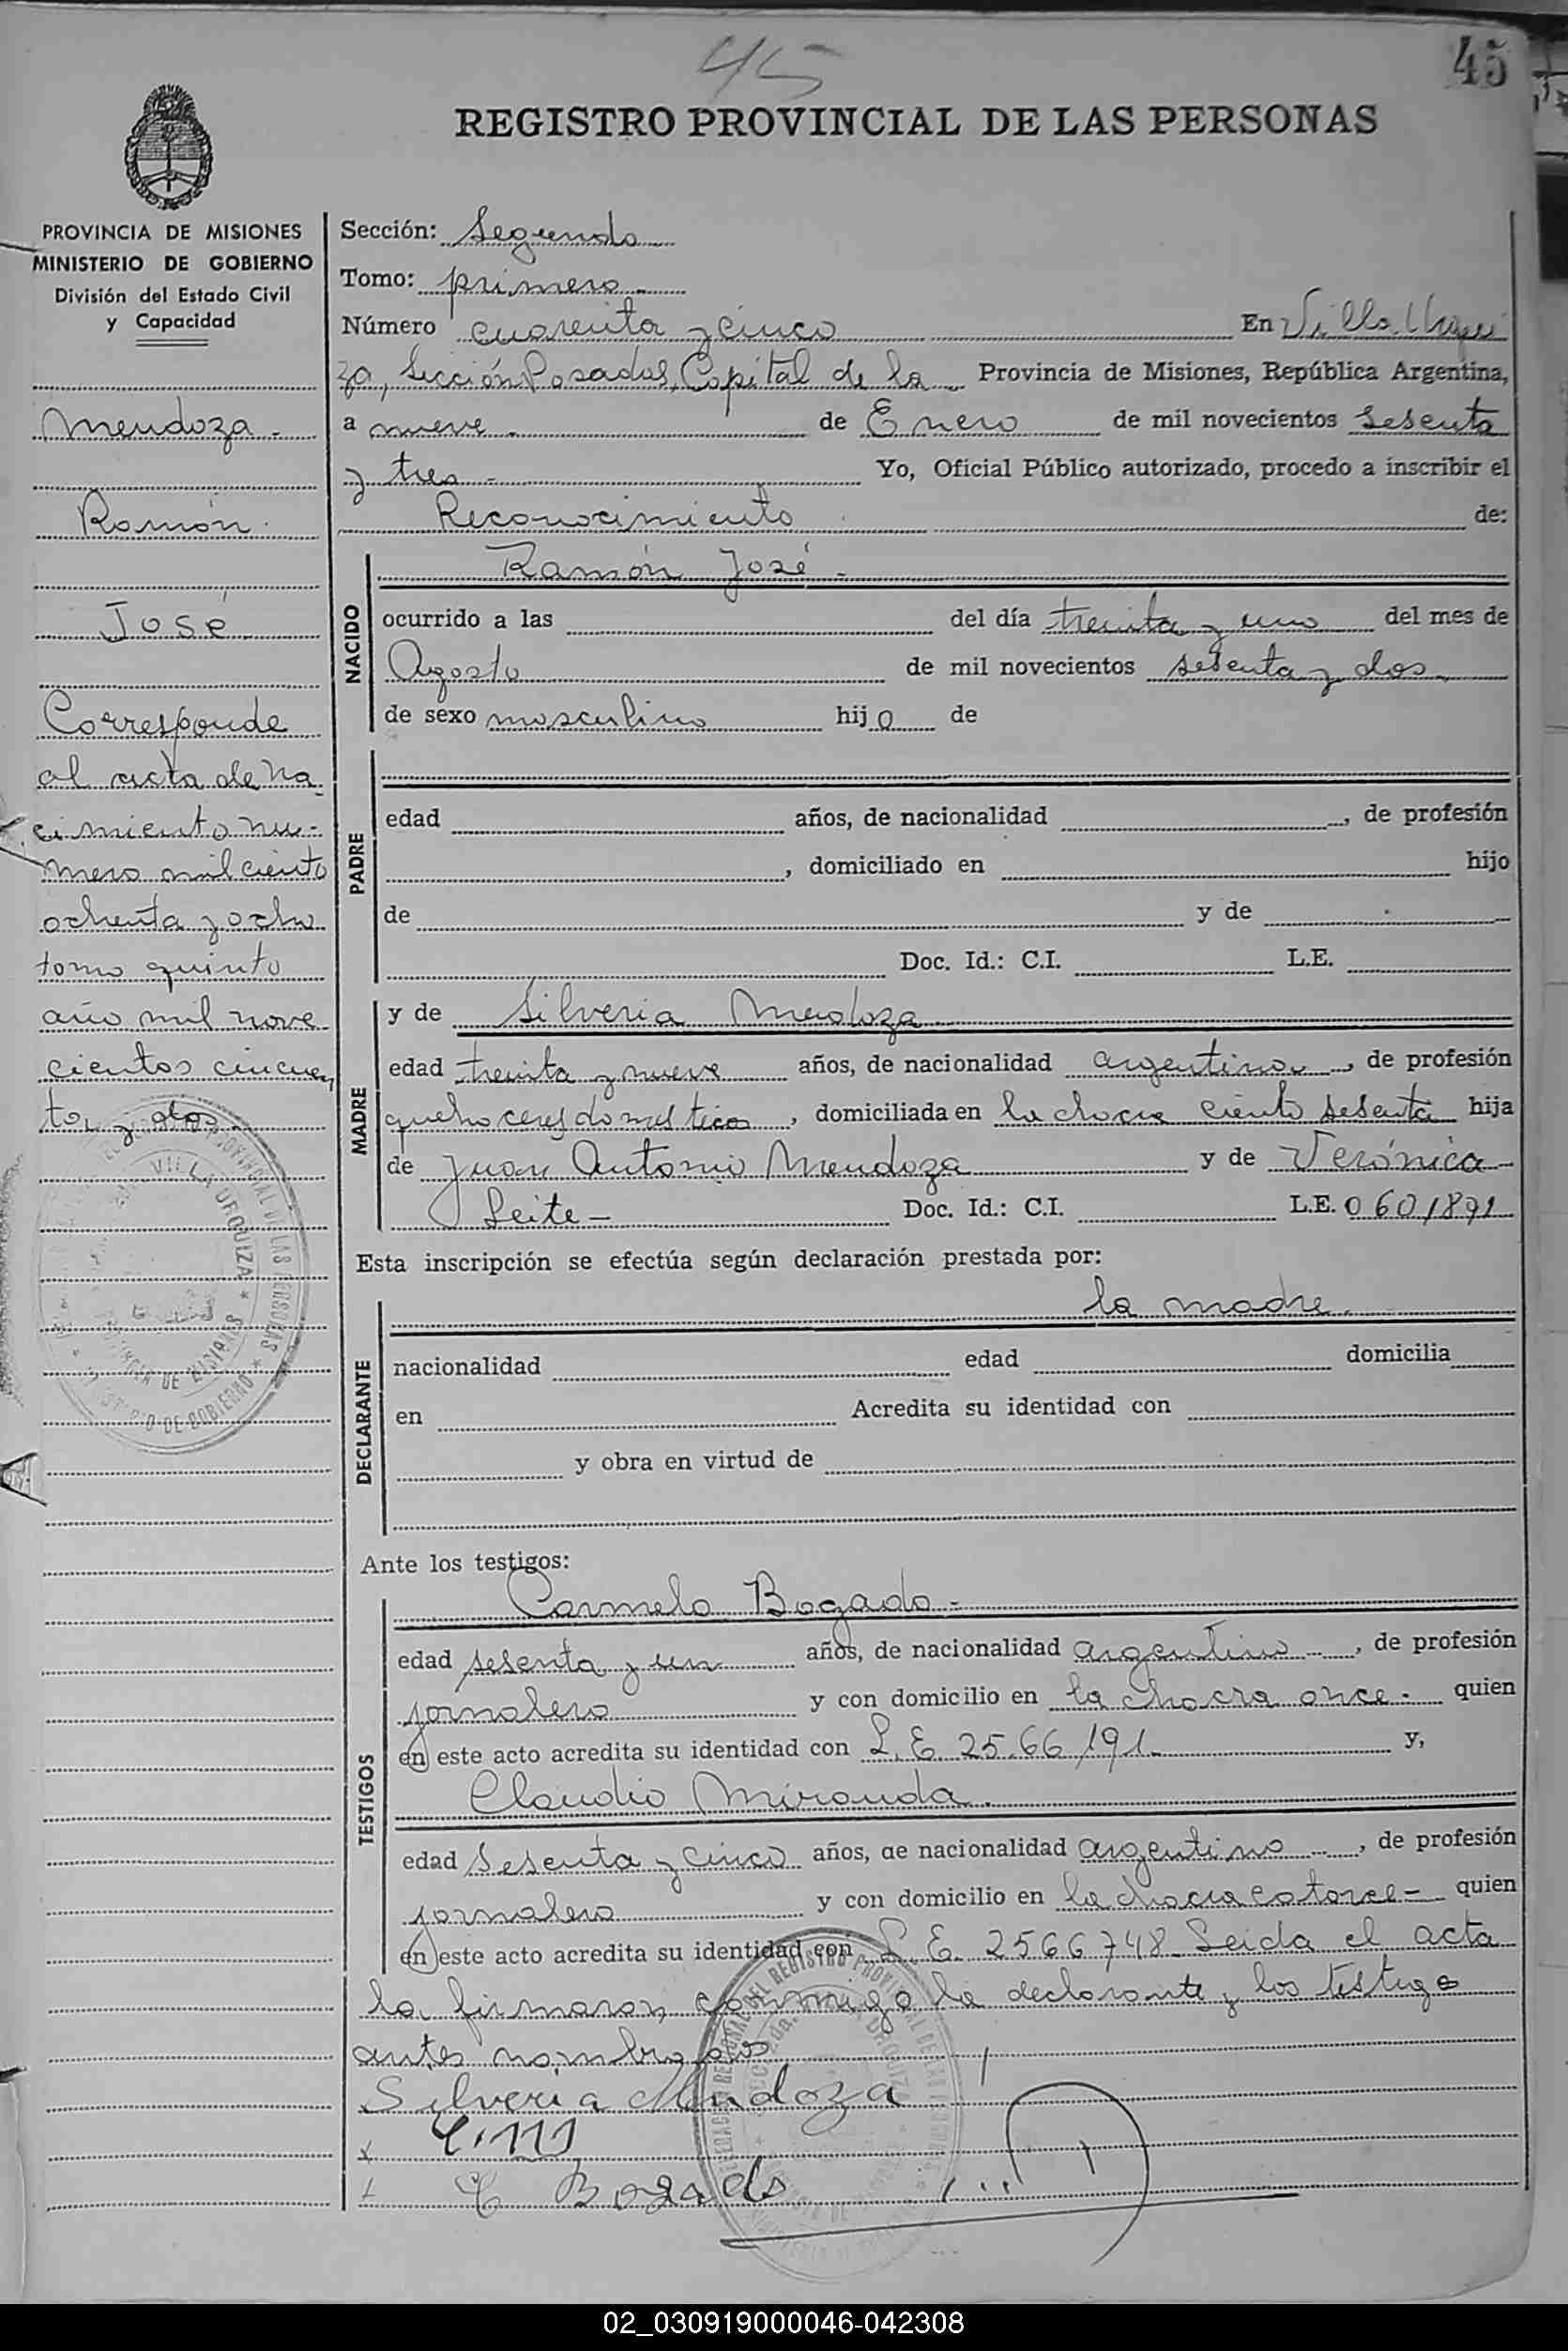 45
45
REGISTRO PROVINCIAL DE LAS PERSONAS
PROVINCIA DE MISIONES
MINISTERIO DE GOBIERNO
División del Estado Civil
y Capacidad
Mendoza -
Ramón
José
Corresponde
al acta de na
cimiento nu-
mero mil ciento
ochenta y ocho
tomo quinto
año mil nove
cientos cincuen
ta y dos
Sección: Segunda
Tomo: primero -
Número cuarenta y cinco En Villa Urqui
za, Sección Posadas, Capital de la Provincia de Misiones, República Argentina,
a nueve - de Enero de mil novecientos sesenta
y tres - Yo, Oficial Público autorizado, procedo a inscribir el
Reconocimiento de:
NACIDO
Ramón José -
ocurrido a las del día treinta y uno del mes de
Agosto de mil novecientos sesenta y dos
de sexo masculino hijo de
PADRE
edad años, de nacionalidad , de profesión
, domiciliado en hijo
de y de
Doc. Id.: C.I. L.E.
MADRE
y de Silveria Mendoza
edad treinta y nueve años, de nacionalidad argentina , de profesión
quehaceres domesticos , domiciliada en la chacra ciento sesenta hija
de Juan Antonio Mendoza y de Verónica
Leite - Doc. Id.: C.I. L.E. 0601891
Esta inscripción se efectúa según declaración prestada por:
DECLARANTE
la madre.
nacionalidad edad domicilia
en Acredita su identidad con
y obra en virtud de
Ante los testigos:
TESTIGOS
Carmelo Bogado -
edad sesenta y un años, de nacionalidad argentino , de profesión
jornalero y con domicilio en la chacra once - quien
en este acto acredita su identidad con L.E 25.66191 y,
Claudio Miranda.
edad sesenta y cinco años, de nacionalidad argentino , de profesión
jornalero y con domicilio en la chacra catorce - quien
en este acto acredita su identidad con L.E. 2566748 Leida el acta
la firmaron conmigo la declarante y los testigos
antes nombrados
Silveria Mendoza
C Bogado
02_030919000046-042308